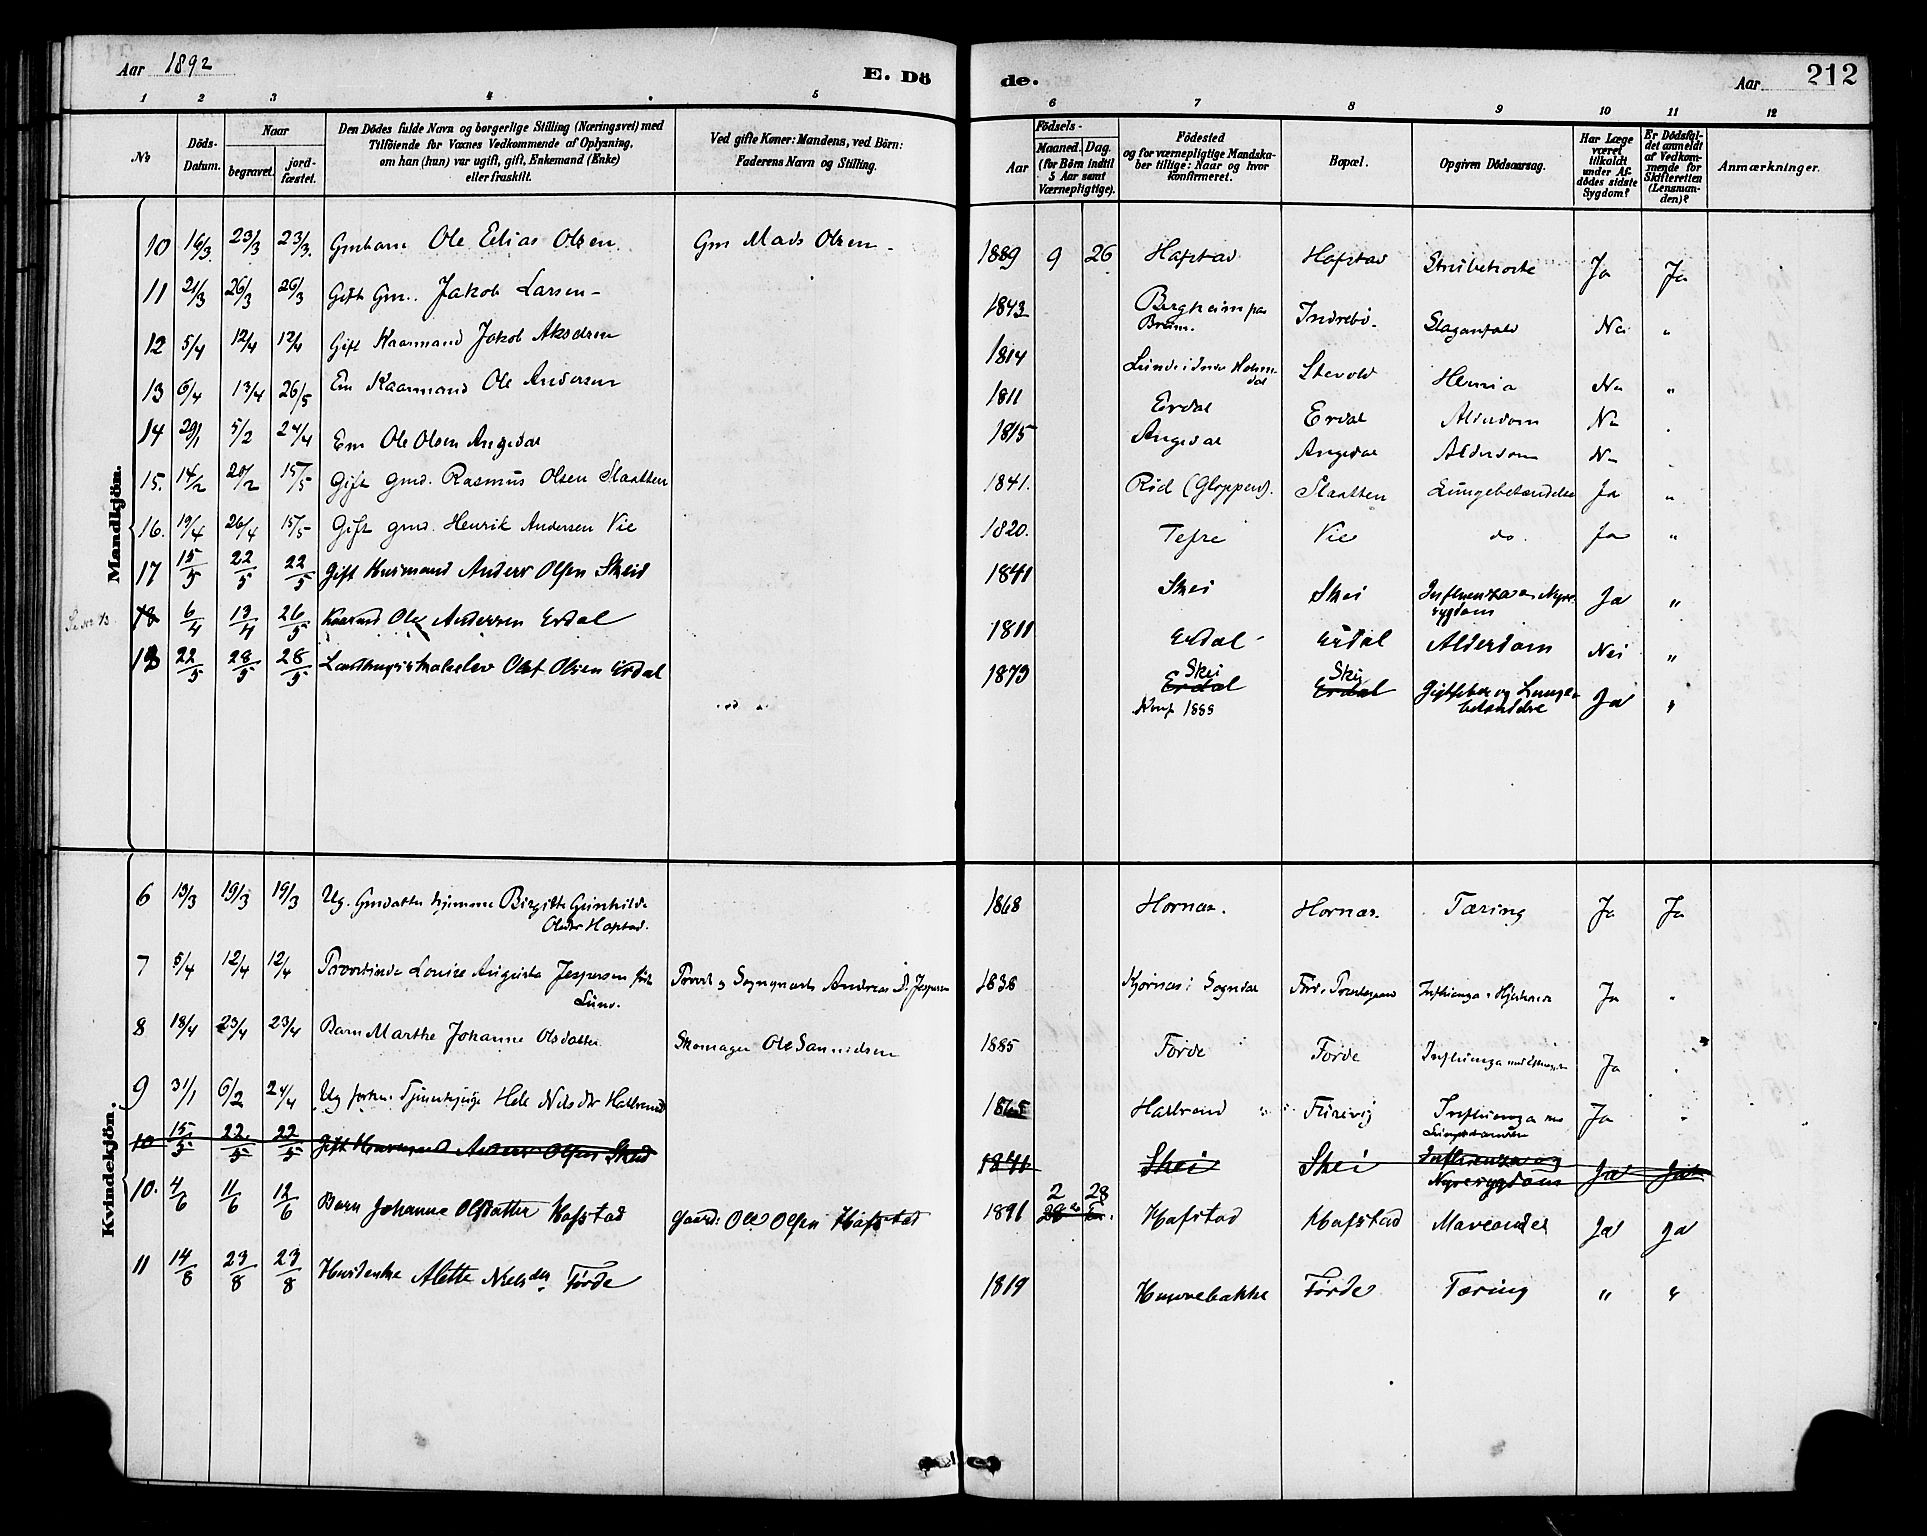 Aar 1892 E. Dö
de. Aar 212
1 2 3 4 5 6 7 8 9 10 11 12
No
Döds-Datum.
Naar
begravet.
jordfæstet.
Den Dödes fulde Navn og borgerlige Stilling (Næringsvei) med
Tilföiende for Voxnes Vedkommende af Oplysning,
om han (hun) var ugift, gift, Enkemand (Enke)
eller fraskilt.
Ved gifte Koner: Mandens, ved Börn:
Faderens Navn og Stilling.
Födsels-
Aar
Maaned. Dag.
(for Börn indtil
5 Aar samt
Værnepligtige).
Födested
og for værnepligtige Mandska-
ber tillige: Naar og hvor
konfirmeret.
Bopæl.
Opgiven Dödsaarsag.
Har Læge
været
tilkaldt
under Af-
dödes sidste
Sygdom?
Er Dödsfal-
det anmeldt
af Vedkom-
mende for
Skifteretten
(Lensman-
den)?
Anmærkninger.
Mandkjön.
10 16/3 23/3 23/3 Gmbarn Ole Elias Olsen Gm Mads Olsen 1889 9 26 Hafstad Hafstad Strubehoste Ja Ja
11 21/3 26/3 26/3 Gift Gm. Jakob Larsen 1843 Bergheim Indrebö Ne "
12 5/4 12/4 12/4 Gift Kaarmand Jakob Akselsen 1814 Stevold Slaganfald
13 6/4 13/4 26/5 Em Kaarmand Ole Andersen 1811 Erdal Erdal Alderdom
14 29/1 5/2 24/4 Em Ole Olsen Angedal 1815 Angedal Angedal Alderdom
15. 14/2 20/2 15/5 Gift gmd. Rasmus Olsen Slaatten 1841. Röd (Gloppen). Slaatten Lungebetændelse Ja "
16. 19/4 26/4 15/5 Gift gmd. Henrik Andersen Vie 1820. Tefre Vie do. Ja "
17 15/5 22/5 22/5 Gift Husmand Anders Olsen Skeid 1841 Skei Skei Influenza og Nyre-
sygdom Ja "
18 6/4 13/4 26/5 Kaarmd Ole Andersen Erdal 1811 Erdal Erdal Alderdom Nei "
22/5 28/5 28/5 Olaf Olsen Erdal 1873 Skei
Erdal Skei
Erdal Gigtfeber og Lunge-
betændelse Ja "
Konf 1888
Kvindekjön.
6 13/3 19/3 19/3 Ug. Gmdatter hjemme Birgitte Gunhilde
Olsdtr Hafstad. 1868 Hornæs. Hornæs. Tæring Ja Ja
7 5/4 12/4 12/4 Provstinde Louise Augusta Jespersen född
Lund. Provst og Sogneprest Andreas Jespersen 1838 Kjörnæs i Sogndal Förde Prestegaard Ja
8 18/4 23/4 23/4 Barn Marthe Johanne Olsdatter Skomager Ole 1885 Förde Förde Influenza Ja
9 31/1 6/2 24/4 Ug Nilsdtr Halbrend 1865 Halbrend Influenza Ja "
10 15/5 22/5 22/5 Gift Husmand Anders Olsen Skeid 1841 Skei Skei Influenza og
Nyresygdom Ja Ja
10. 4/6 11/6 12/6 Barn Johanne Olsdatter Hafstad Gaard: Ole Olsen Hafstad 1891 2 28 Hafstad Hafstad Maveonde Ja Ja
11 14/8 23/8 23/8 Husdenke Alette Nielsdtr Förde 1819 Förde Tæring " "